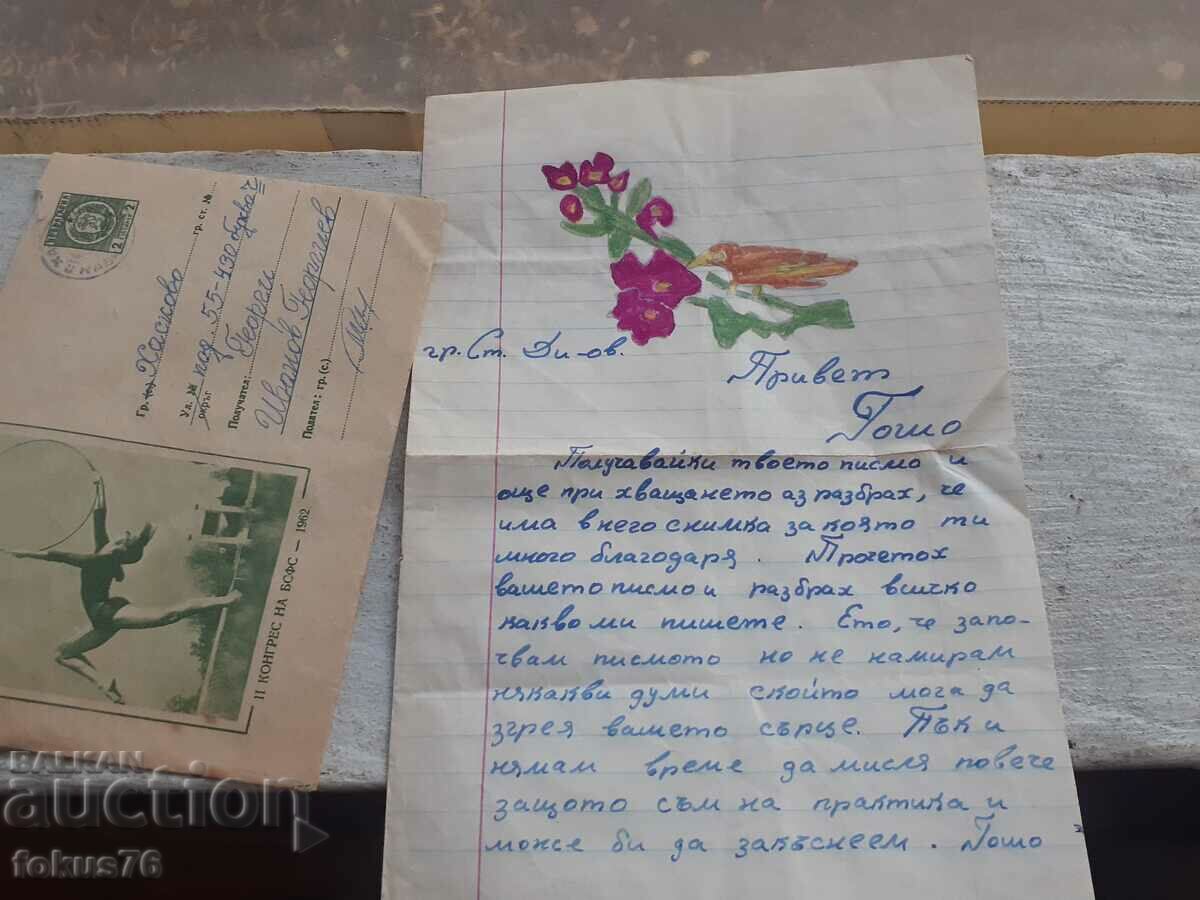 НР БЪЛГАРИЯ
2
гр. ст. №
Гр. Хасково
Ул. №
под. 55-430 буква Ч
окръг
Получател: Георги
Иванов Георгиев
Подател: гр. (с.)
II КОНГРЕС НА БСФС — 1962
гр. Ст. Ди-ов.
Привет
Гошо
Получавайки твоето писмо и
още при хващането аз разбрах, че
има в него снимка за която ти
много благодаря. Прочетох
вашето писмо и разбрах всичко
какво ми пишете. Ето, че запо-
чвам писмото но не намирам
някакви думи скойто мога да
згрея вашето сърце. Пък и
нямам време да мисля повече
защото съм на практика и
може би да закъснеем. Гошо
BALKAN
auction
fokus76